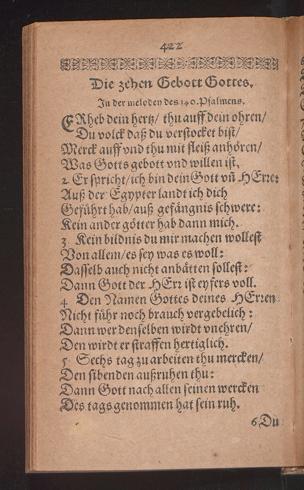 422
Die zehen Gebott Gottes.
In der melodey des 140. Psalmens.
ERheb dein hertz/ thu auff dein ohren/
Du volck daß du verstocket bist/
Merck auff vnd thu mit fleiß anhören/
Was Gotts gebott vnd willen ist.
2 Er spricht/ ich bin dein Gott vñ HErre:
Auß der Egypter landt ich dich
Geführt hab/ auß gefängnis schwere:
Kein ander götter hab dann mich.
3 Kein bildnis du mir machen wollest
Von allem/ es sey was es woll:
Dasselb auch nicht anbätten sollest:
Dann Gott der HErr ist eyfers voll.
4 Den Namen Gottes deines HErren
Nicht führ noch brauch vergebelich:
Dann wer denselben wirdt vnehren/
Den wirdt er straffen hertiglich.
5 Sechs tag zu arbeiten thu mercken/
Den sibenden außruhen thu:
Dann Gott nach allen seinen wercken
Des tags genommen hat sein ruh.
6. Du